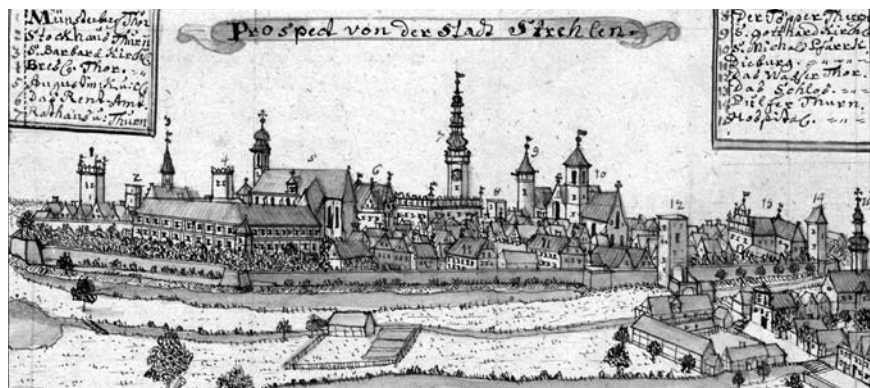 Prospect von der Stadt Strehlen.
1 Münsterberg Thor
2 Stockhaus Thurn
3 S. Barbara Kirch
4 Bresl. Thor.
5 Augustin. Kirch
6 Das Rent Amt.
7 Rathaus u: Thurn
8 Der Töpper Thurn
9 S. Gotthard Kirch
10 S. Michael Pfarrk.
11 Die burg.
12 Das Wasser Thor.
13 Das Schlos.
14 Pulfer Thurn.
15 Hospital.
2
3
4
5
6
7
8
9
10
11
12
13
14